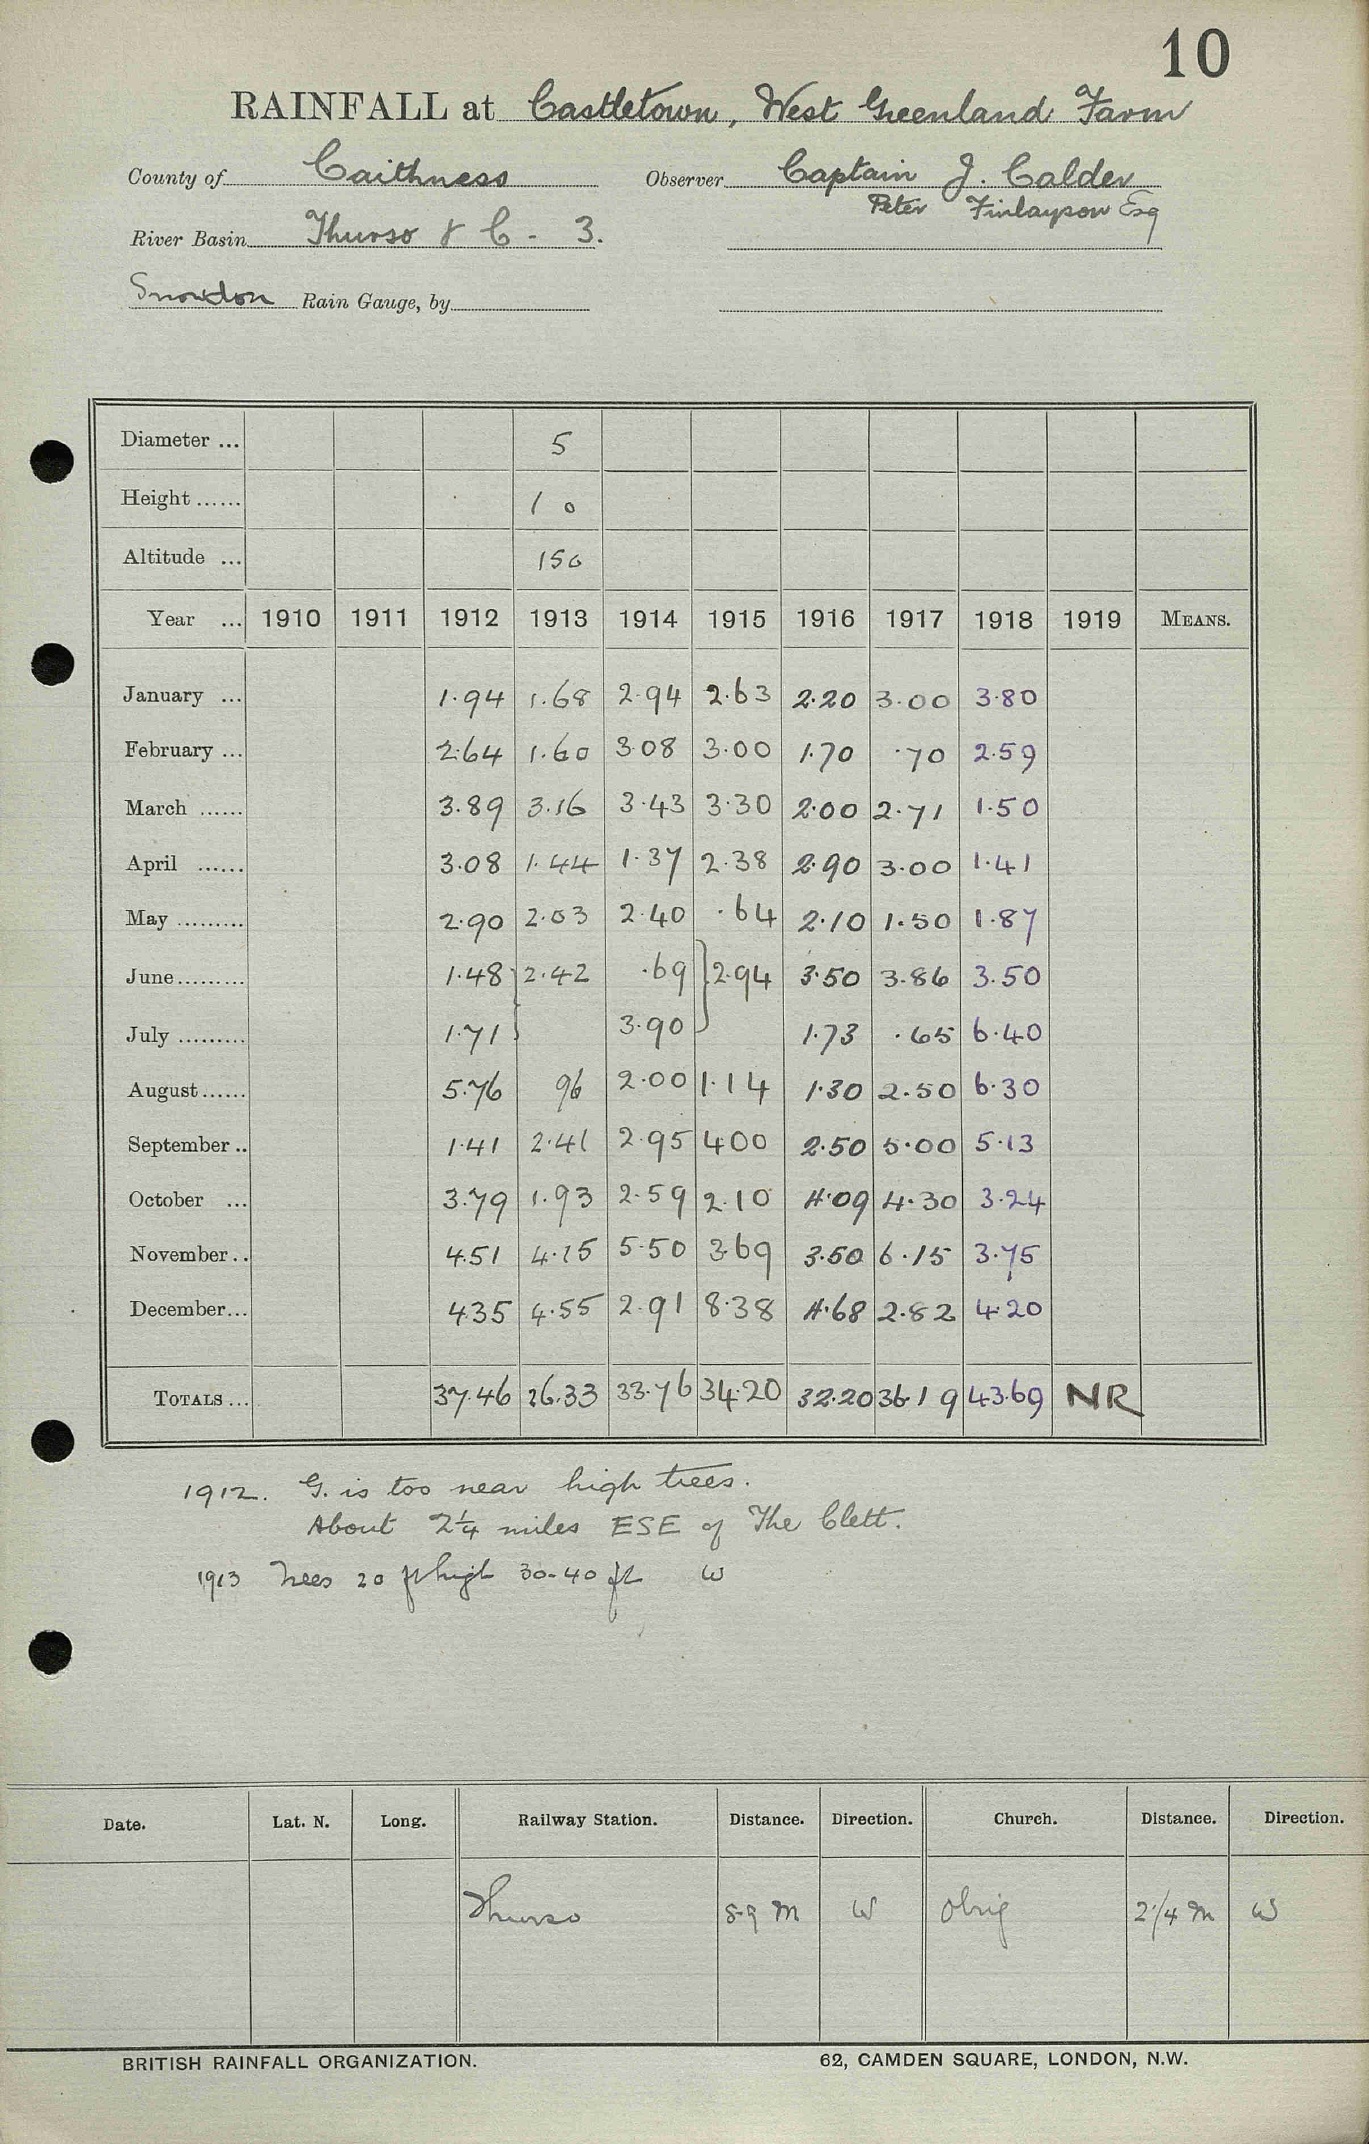 10
RAINFALL at Castletown, West Greenland Farm
County of Caithness Observer Captain J. Calder
Peter Finlayson Esq
River Basin Thurso & C - 3.
Snowdon Rain Gauge, by
Diameter ... 5
Height ...... 1 0
Altitude ... 150
Year ... 1910 1911 1912 1913 1914 1915 1916 1917 1918 1919 MEANS.
January ... 1.94 1.68 2.94 2.63 2.20 3.00 3.80
February ... 2.64 1.60 3.08 3.00 1.70 .70 2.59
March ...... 3.89 3.16 3.43 3.30 2.00 2.71 1.50
April ...... 3.08 1.44 1.37 2.38 2.90 3.00 1.41
May ......... 2.90 2.03 2.40 .64 2.10 1.50 1.87
June......... 1.48 } 2.42 .69 } 2.94 3.50 3.86 3.50
July ......... 1.71 3.90 1.73 .65 6.40
August...... 5.76 96 2.00 1.14 1.30 2.50 6.30
September .. 1.41 2.41 2.95 4.00 2.50 5.00 5.13
October ... 3.79 1.93 2.59 2.10 4.09 4.30 3.24
November .. 4.51 4.15 5.50 3.69 3.50 6.15 3.75
December... 4.35 4.55 2.91 8.38 4.68 2.82 4.20
TOTALS ... 37.46 26.33 33.76 34.20 32.20 36.19 43.69 NR
1912. G. is too near high trees.
About 2 1/4 miles ESE of The Clett.
1913 Trees 20 ft high 30-40 ft W
Date. Lat. N. Long. Railway Station. Distance. Direction. Church. Distance. Direction.
Thurso 8-9 m W Olrig 2 1/4 m W
BRITISH RAINFALL ORGANIZATION. 62, CAMDEN SQUARE, LONDON, N.W.